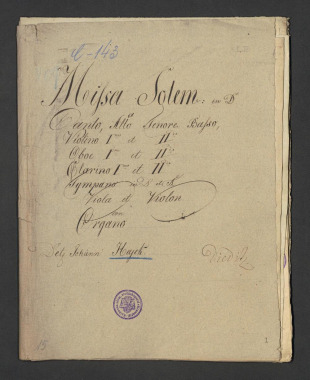 A-143
Missa Solem: in D
Canto, Alto Tenore Basso,
Violino Imo et IIdo
Oboe Imo et IIdo
Clarino Imo et IIdo
Tympano
Viola et Violon
con
Organo
Johann Hajek
15
1